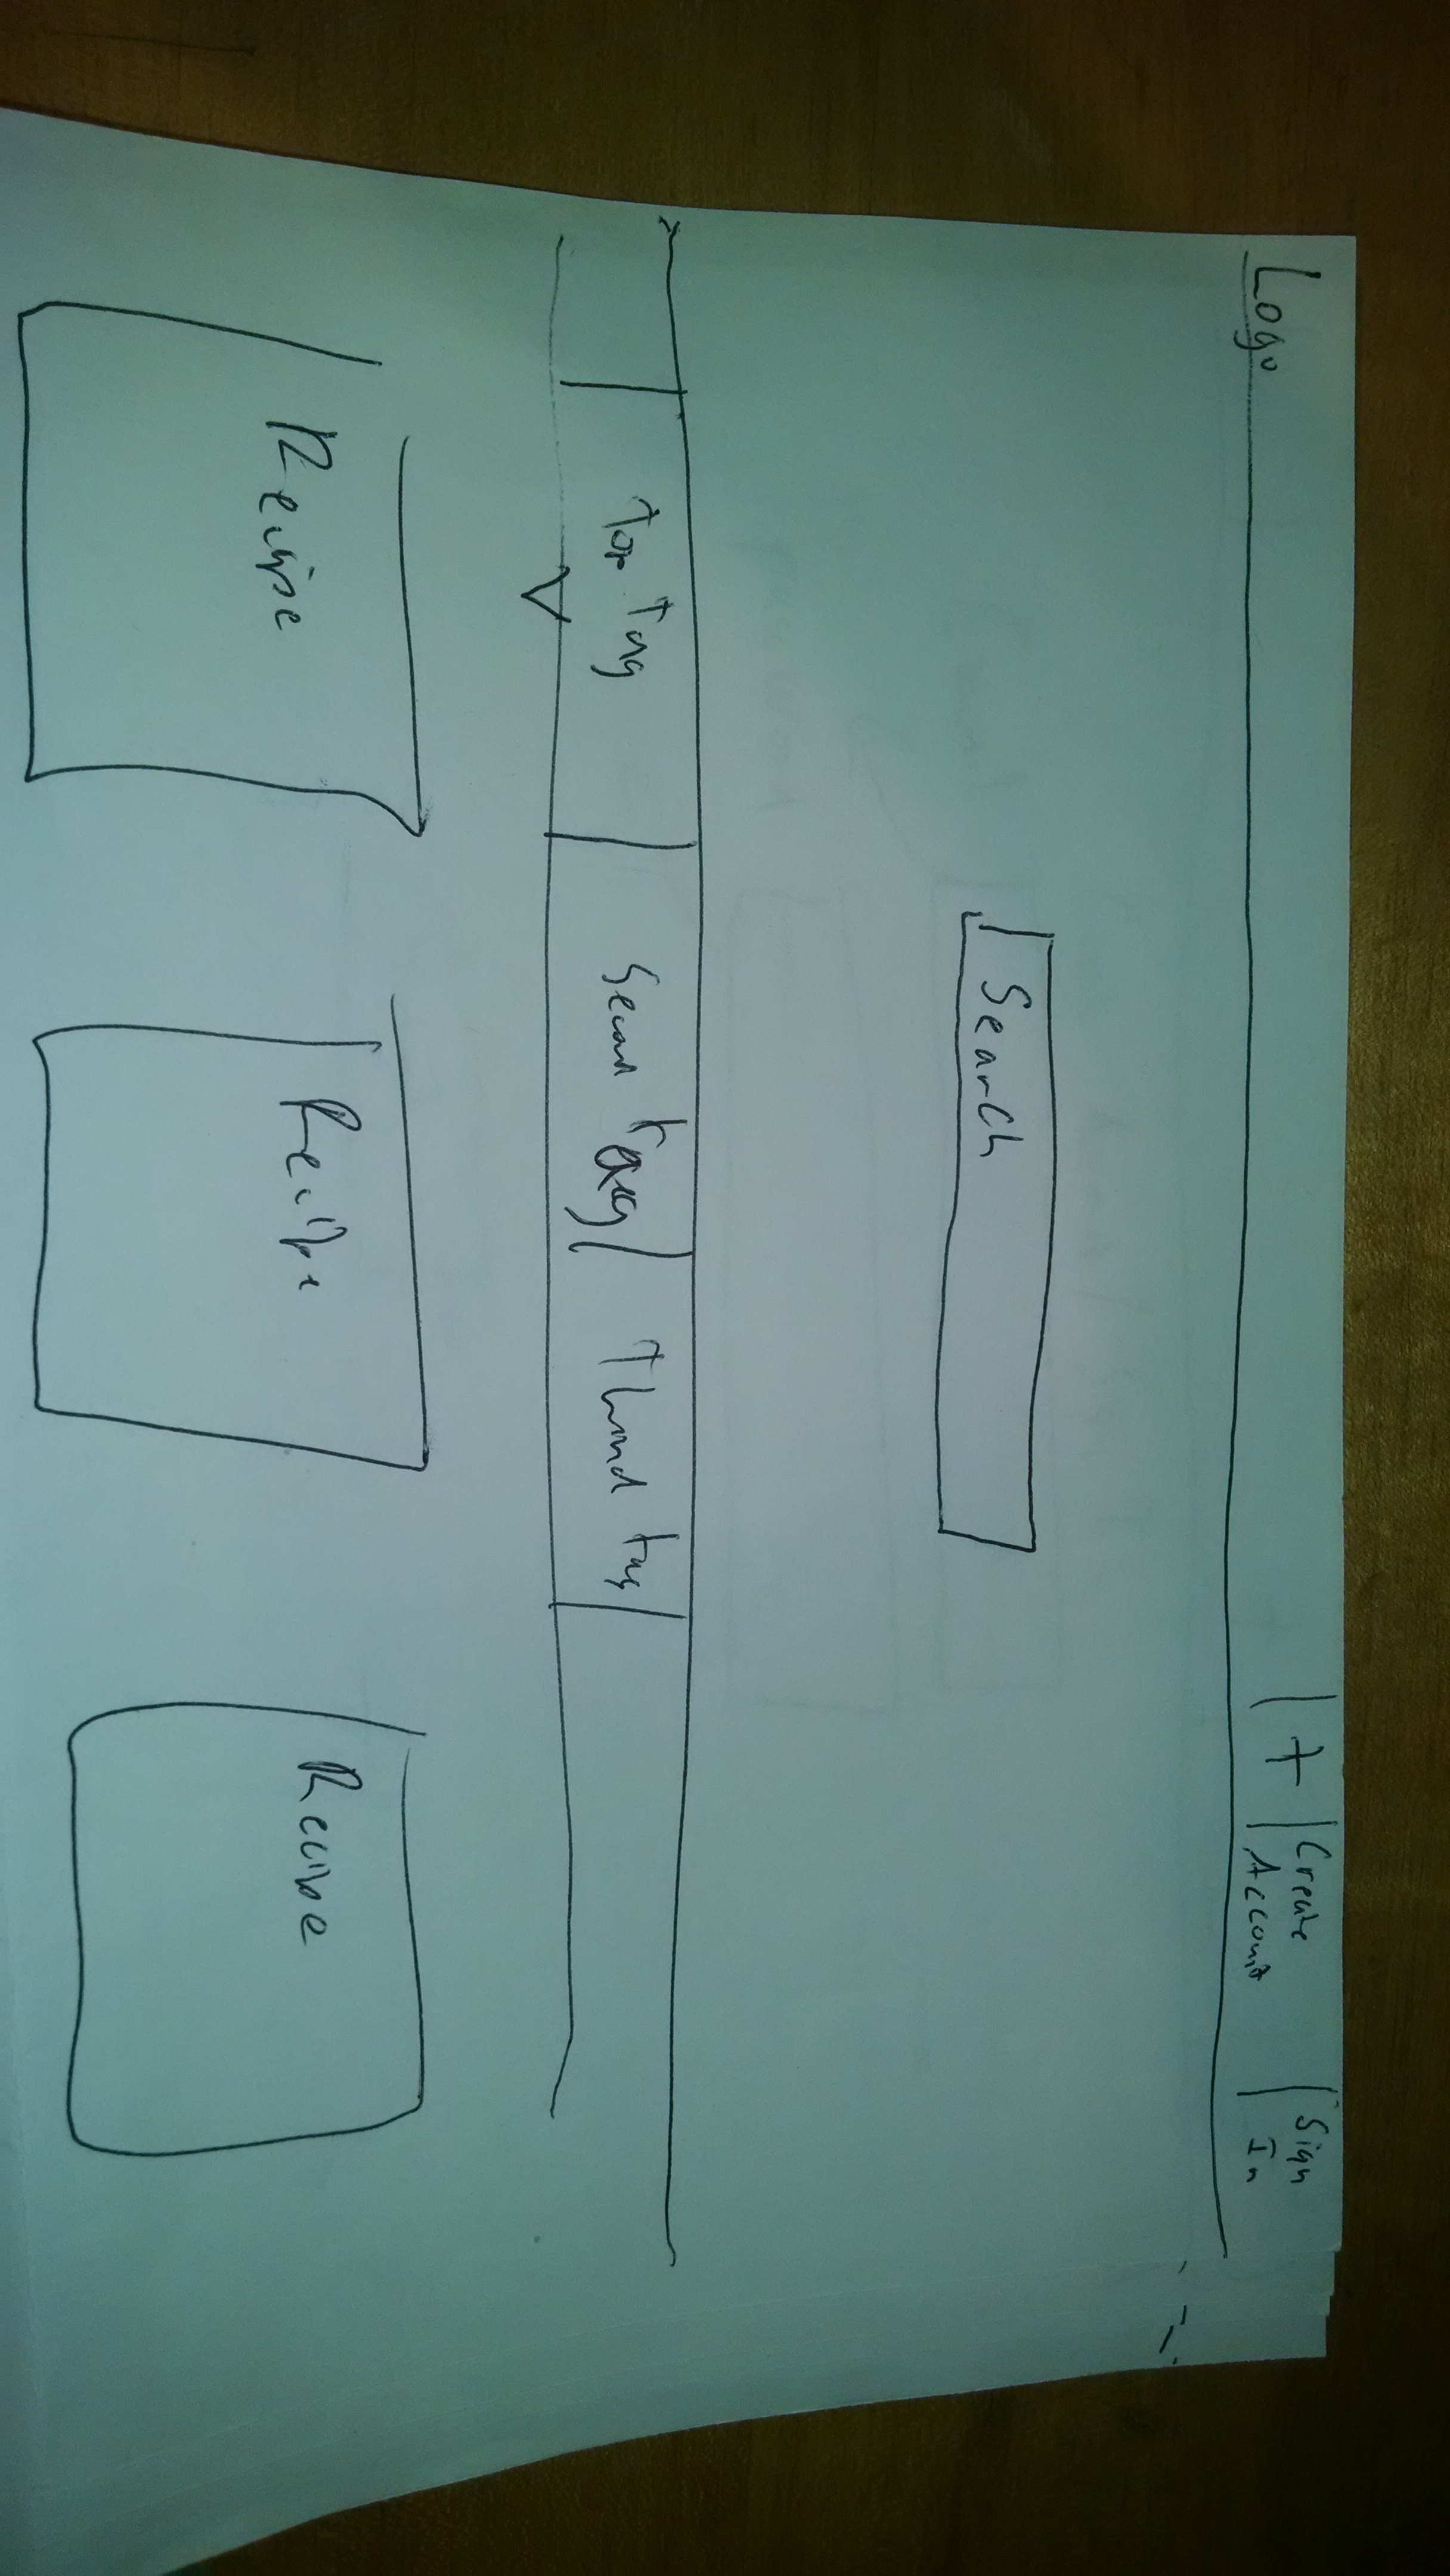 Logo
+
Create
Account
Sign
In
Search
Top Tag
Second tag
Third tag
Recipe
Recipe
Recipe